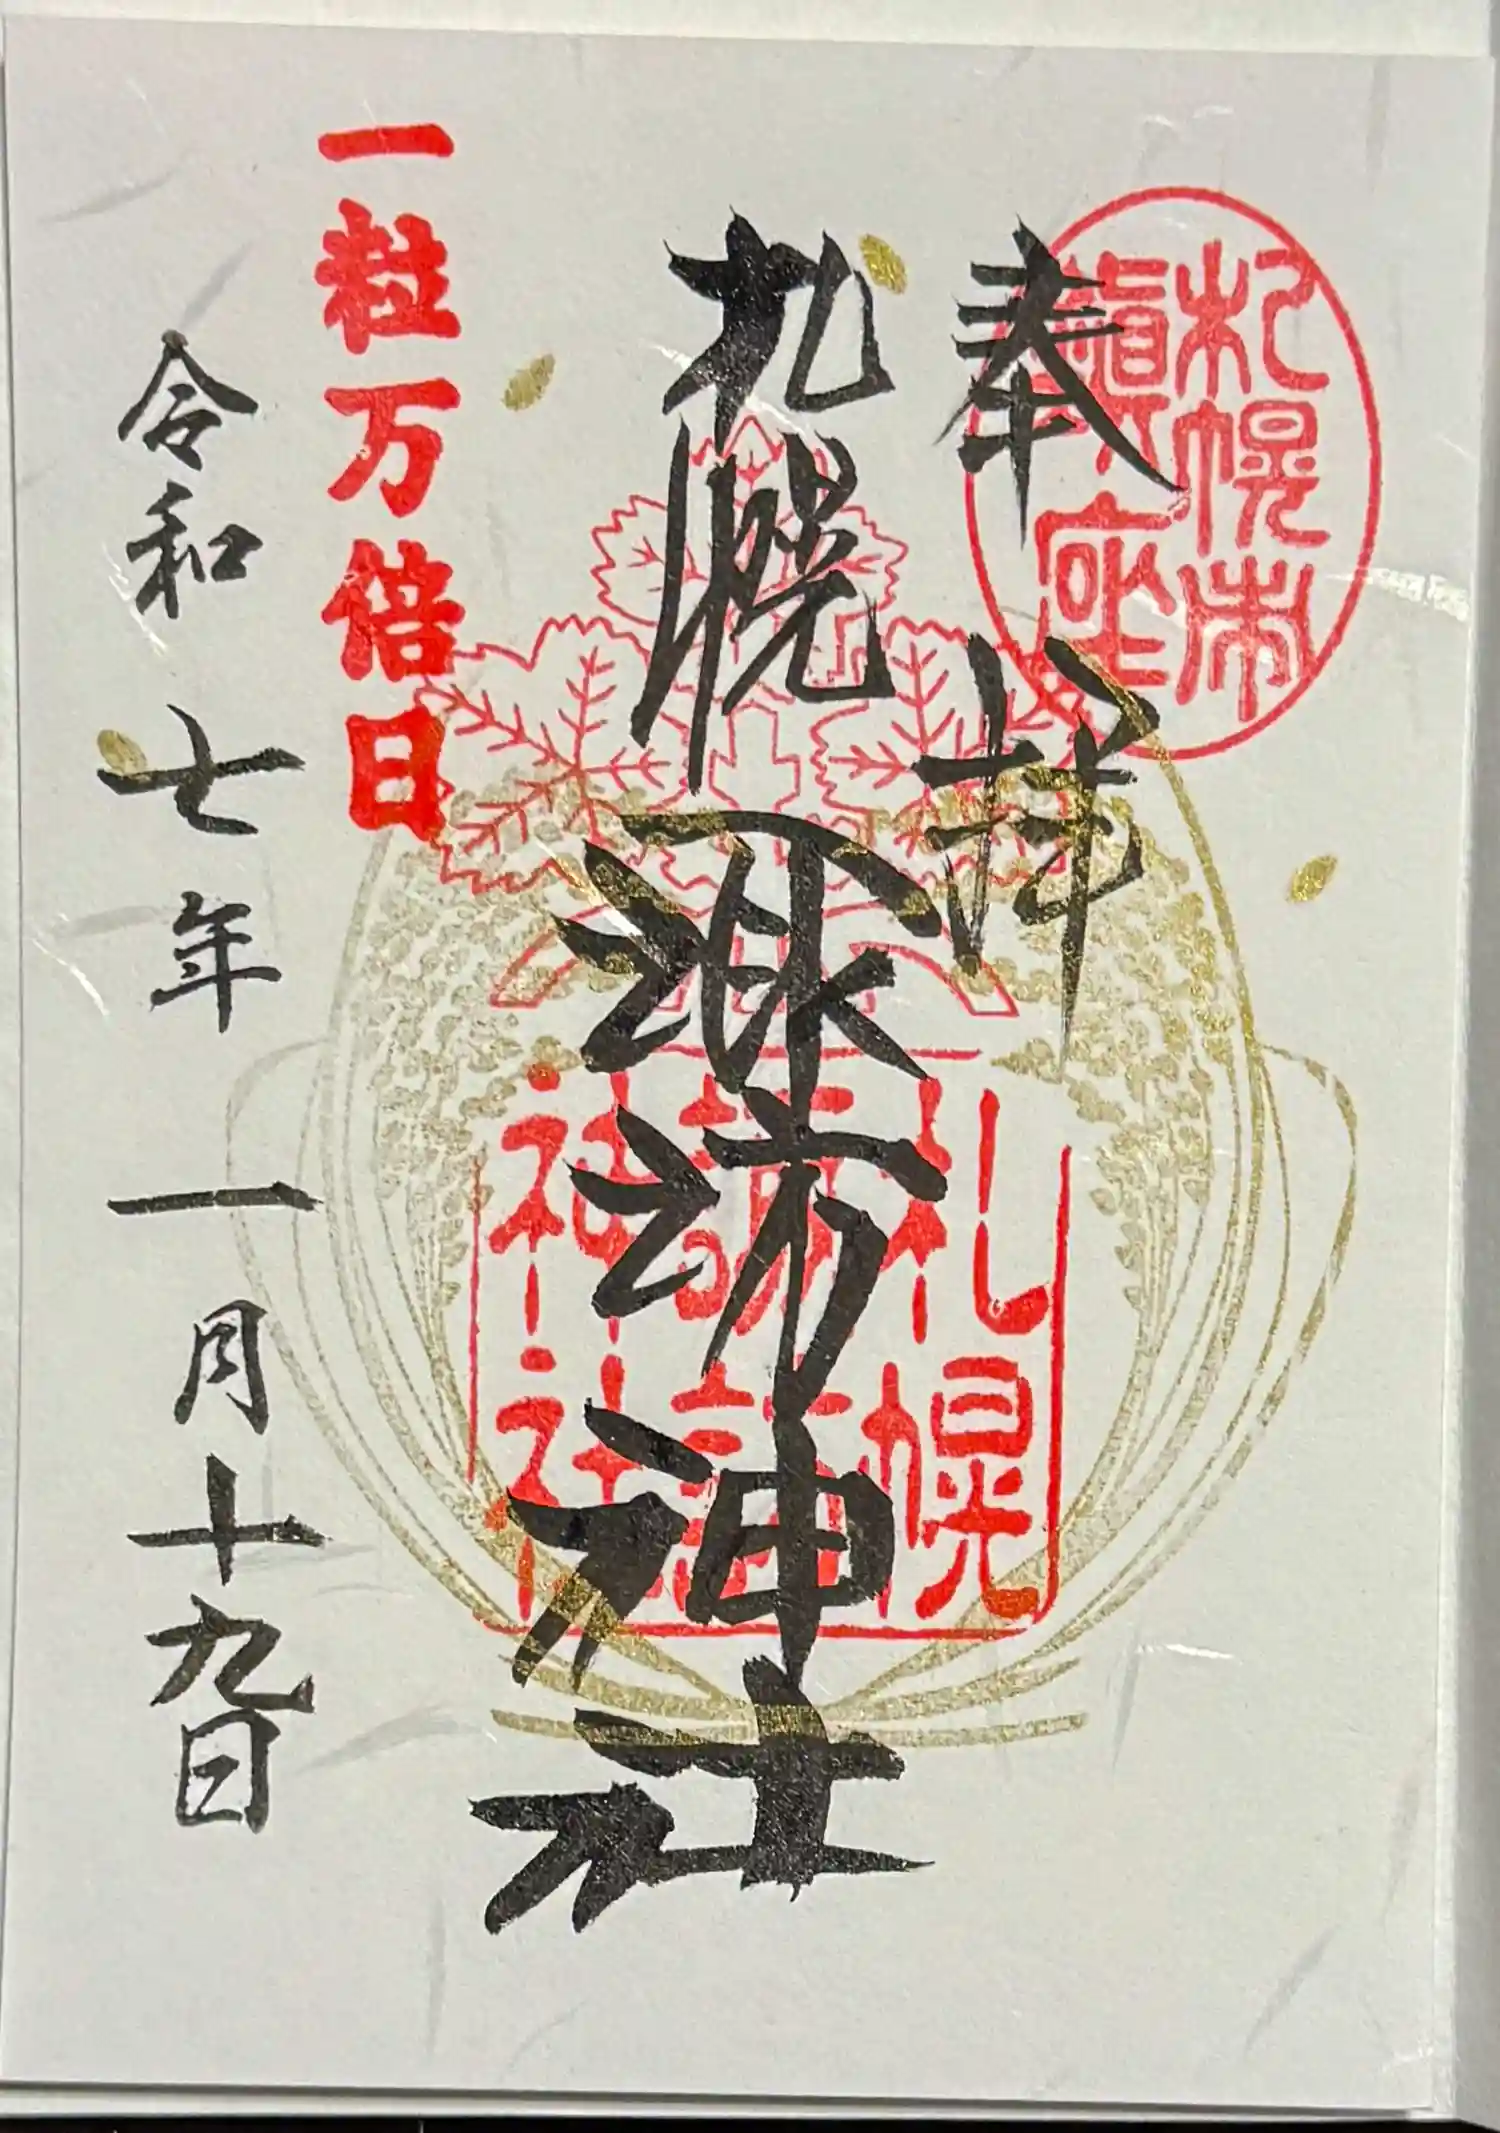 札幌市
鎮座
奉拝
札幌諏訪神社
札幌
諏訪
神社
一粒万倍日
令和七年一月十九日